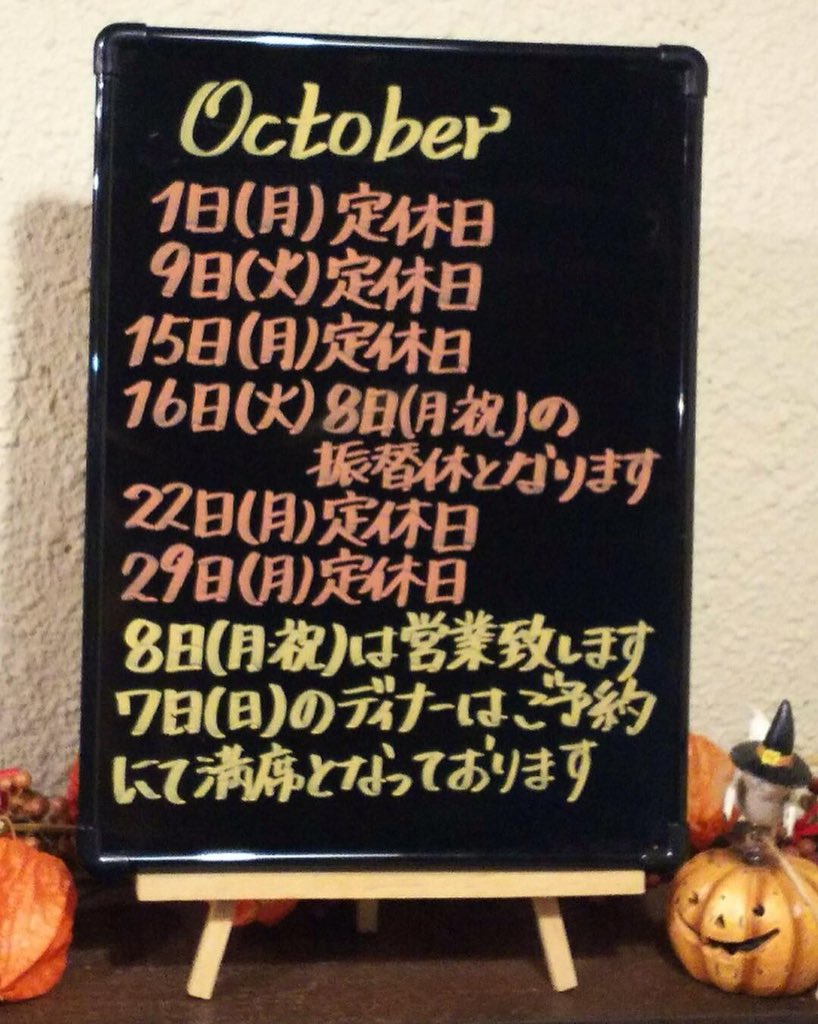 October
1日(月)定休日
9日(火)定休日
15日(月)定休日
16日(火)8日(月・祝)の
振替休となります
22日(月)定休日
29日(月)定休日
8日(月・祝)は営業致します
7日(日)のディナーはご予約
にて満席となっております